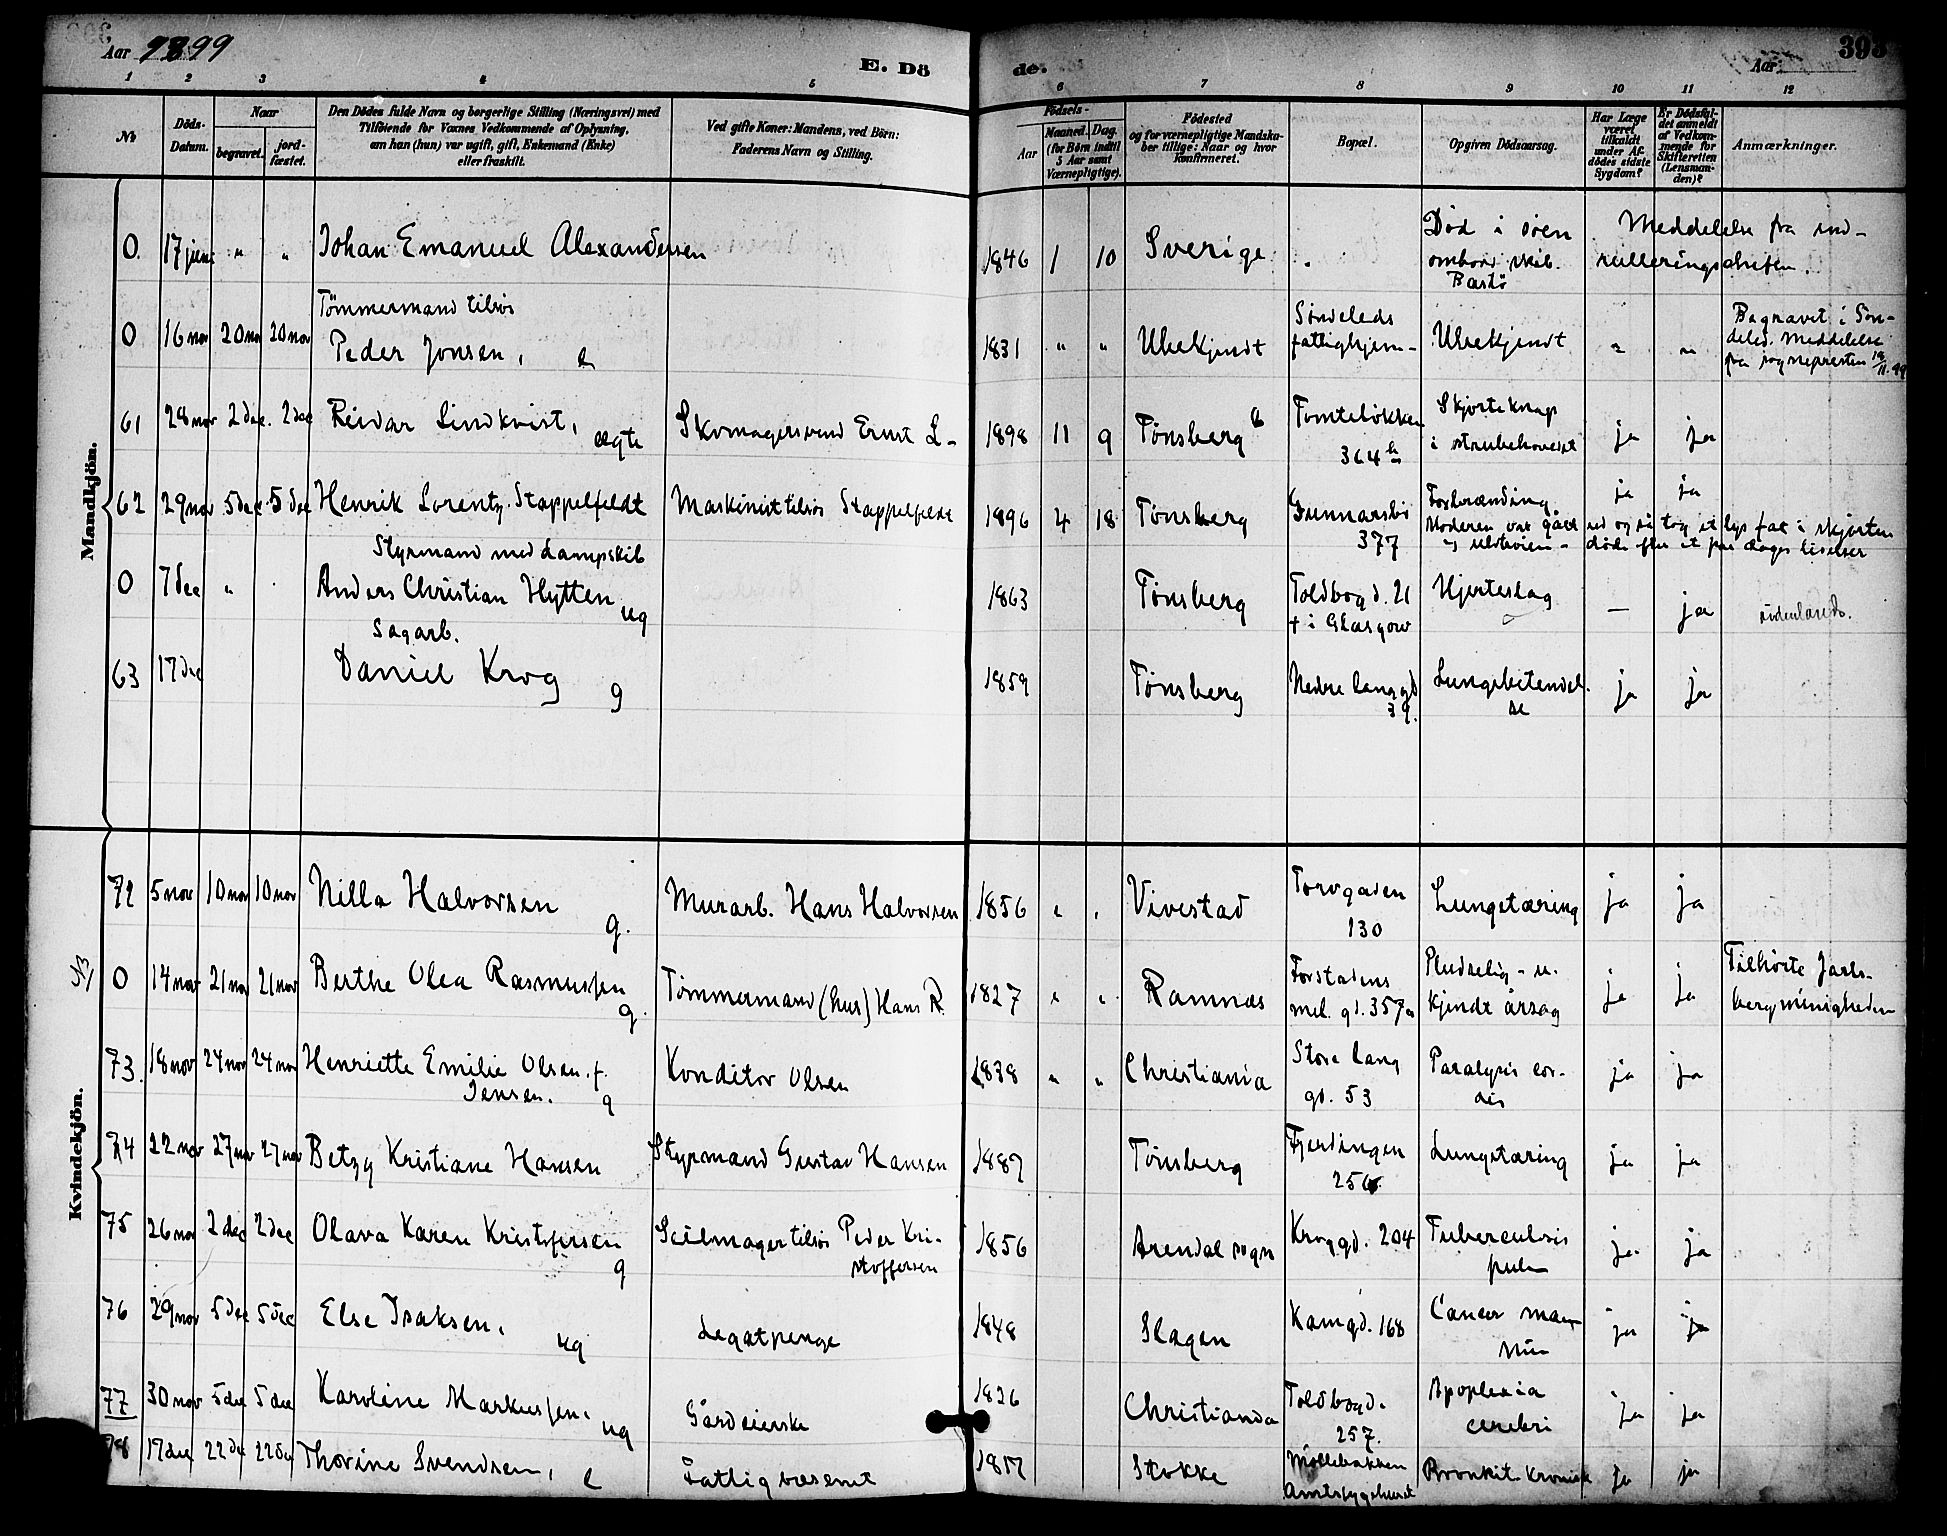 Aar 1899
E. Dö
de.
Aar
393
1 2 3 4 5 6 7 8 9 10 11 12
№
Döds-Datum.
Naar
begravet.
jord-fæstet.
Den Dödes fulde Navn og borgerlige Stilling (Næringsvei) med
Tilföiende for Voxnes Vedkommende af Oplysning,
om han (hun) var ugift, gift, Enkemand (Enke)
eller fraskilt.
Ved gifte Koner: Mandens, ved Börn:
Faderens Navn og Stilling.
Födsels-
Aar
Maaned. Dag.
(for Börn indtil
5 Aar samt
Værnepligtige).
Födested
og for værnepligtige Mandska-
ber tillige: Naar og hvor
konfirmeret.
Bopæl.
Opgiven Dödsaarsag.
Har Læge
været
tilkaldt
under Af-
dödes sidste
Sygdom?
Er Dödsfal-
det anmeldt
af Vedkom-
mende for
Skifteretten
(Lensman-
den)?
Anmærkninger.
Mandkjön.
0. 17 juni " " Johan Emanuel Alexandersen 1846 1 10 Sverige . Död i söen ombord skib. Bastö Meddelelse fra ind-rulleringschefen.
0 16 nov 20 nov 20 nov Tømmermand tilsös Peder Jonsen, e 1831 " " Ubekjendt Söndeleds fattighjem- Ubekjendt " " Begravet i Sön-deled. Meddelelse fra sognepresten 19/11.99
61 28 nov 2 dec. 2 dec Reidar Lindkvist, ægte Skomagersvend Ernst L- 1898 11 9 Tönsberg Tomtelökken 364 b Skjorteknap i strubehovedet ja ja
62 29 nov 5 dec. 5 dec Henrik Lorentz Stappelfeldt Maskinist tilsös Stappelfeldt 1896 4 18 Tönsberg Gunnarsbö 377 Forbrænding ja ja
Moderen var gået ned og så tog et lys fat i skjorten
döde efter et par dages lidelser
0 7 dec " . Styrmand med dampskib Anders Christian Hytten ug 1863 Tönsberg Toldbogd. 21 † i Glasgow Hjerteslag — ja udenlands.
63 17 dec Sagarb. Daniel Krog g 1859 Tönsberg Nedre langgd 39. Lungebetendel-se ja ja
Kvindekjön.
72 5 nov 10 nov 10 nov Nilla Halvorsen g. Murarb. Hans Halvorsen 1856 " " Vivestad Torvgaden 130 Lungetæring ja ja
0 14 nov 21 nov 21 nov Berthe Olea Rasmussen g. Tømmermand (hus) Hans R. 1827 " " Ramnæs Forstadens mel. gd. 357a Pludselig - u-kjendt årsag ja ja Tilhörte Jarls-bergmenigheden
73. 18 nov 24 nov 24 nov Henriette Emilie Olsen f. Jensen. g Konditor Olsen 1838 " " Christiania Store lang gd. 53 Paralysis cor-dis ja ja
74 22 nov 27 nov 27 nov Betzy Kristiane Hansen Styrmand Gustav Hansen 1887 Tönsberg Fjerdingen 256. Lungetæring ja ja
75 26 nov 2 dec 2 dec Olava Karen Kristofersen g Seilmager tilsös Peder Kri-stoffersen 1856 Arendal sogn Kroggd. 204 Tuberculosis pulm ja ja
76 29 nov 5 dec 5 dec Else Isaksen. ug Legatpenge 1848 Slagen Kamgd. 168 Cancer mam- ja ja
77 30 nov 5 dec 5 dec Karoline Markussen. ug Gårdeierske 1826 Christiania Toldbogd. 257. Apoplexia cerebri ja ja
78 17 dec 22 dec 22 dec Thorine Svendsen, e Fattigvæsenet Stokke Möllebakken Amtssygehuset Bronkit. kronisk ja ja